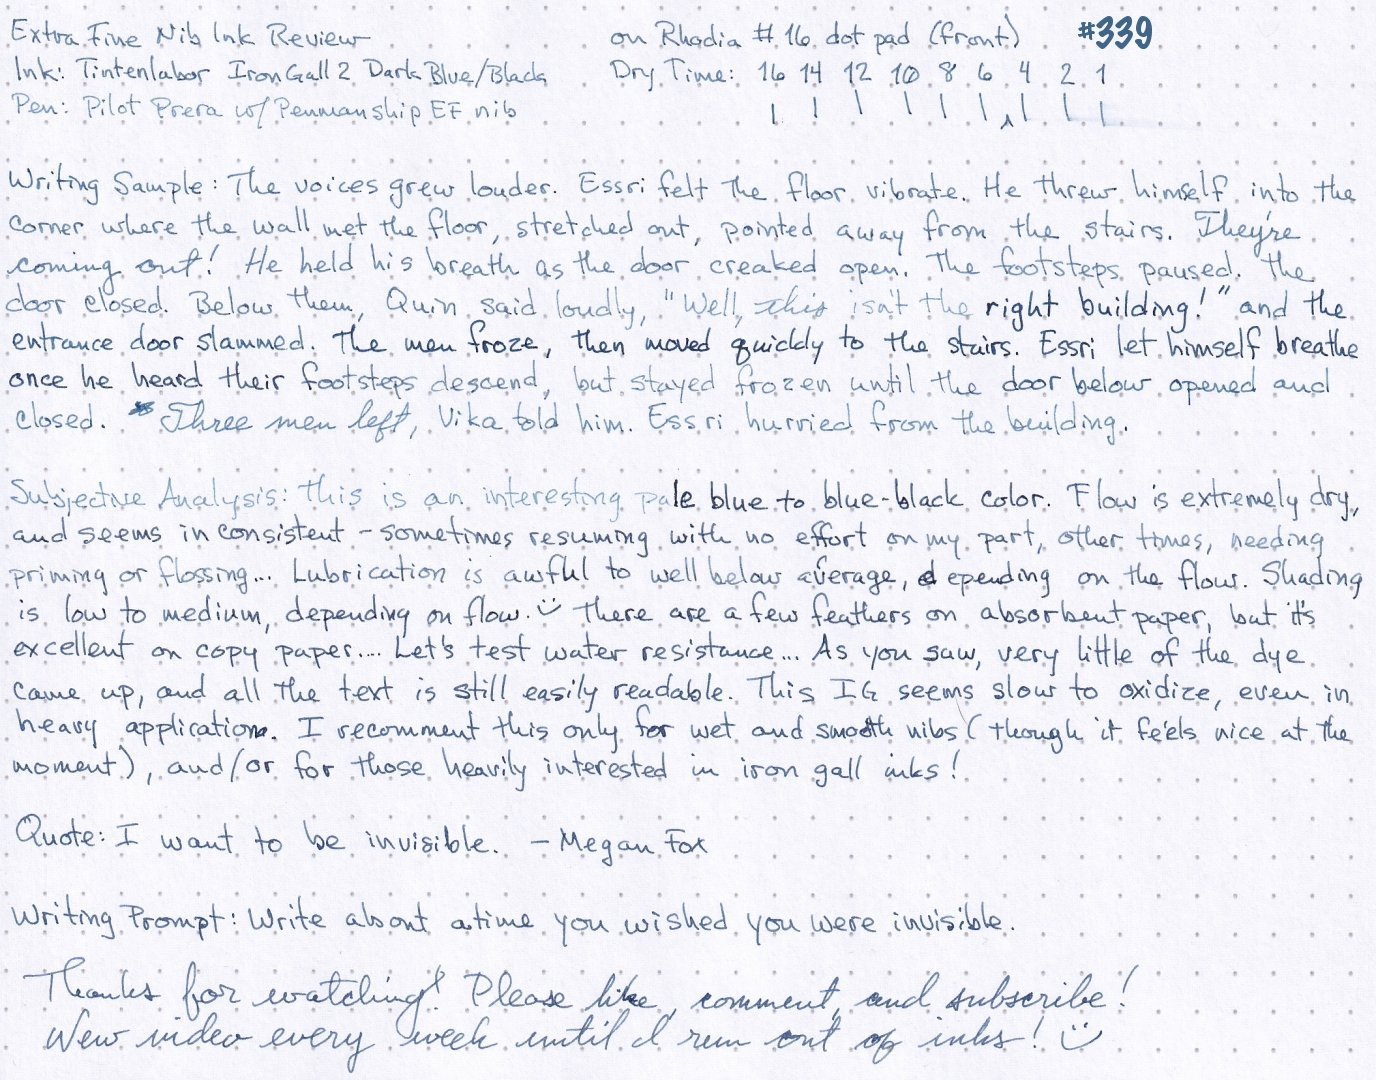 Extra Fine Nib Ink Review on Rhodia # 16 dot pad (front) #339
Ink: Tintenlabor Iron Gall 2 Dark Blue/Black Dry Time: 16 14 12 10 8 6 4 2 1
Pen: Pilot Prera w/ Penmanship EF nib
Writing Sample: The voices grew louder. Essri felt the floor vibrate. He threw himself into the
corner where the wall met the floor, stretched out, pointed away from the stairs. They're
coming out! He held his breath as the door creaked open. The footsteps paused. The
door closed. Below them, Quin said loudly, "Well, this isn't the right building!" and the
entrance door slammed. The men froze, then moved quickly to the stairs. Essri let himself breathe
once he heard their footsteps descend, but stayed frozen until the door below opened and
closed. Three men left, Vika told him. Essri hurried from the building.
Subjective Analysis: This is an interesting pale blue to blue-black color. Flow is extremely dry,
and seems inconsistent - sometimes resuming with no effort on my part, other times, needing
priming or flossing... Lubrication is awful to well below average, depending on the flow. Shading
is low to medium, depending on flow. :) There are a few feathers on absorbent paper, but it's
excellent on copy paper.... Let's test water resistance... As you saw, very little of the dye
came up, and all the text is still easily readable. This IG seems slow to oxidize, even in
heavy application. I recomment this only for wet and smooth nibs (though it feels nice at the
moment), and/or for those heavily interested in iron gall inks!
Quote: I want to be invisible. - Megan Fox
Writing Prompt: Write about a time you wished you were invisible.
Thanks for watching! Please like, comment, and subscribe!
New video every week until I run out of inks! :)